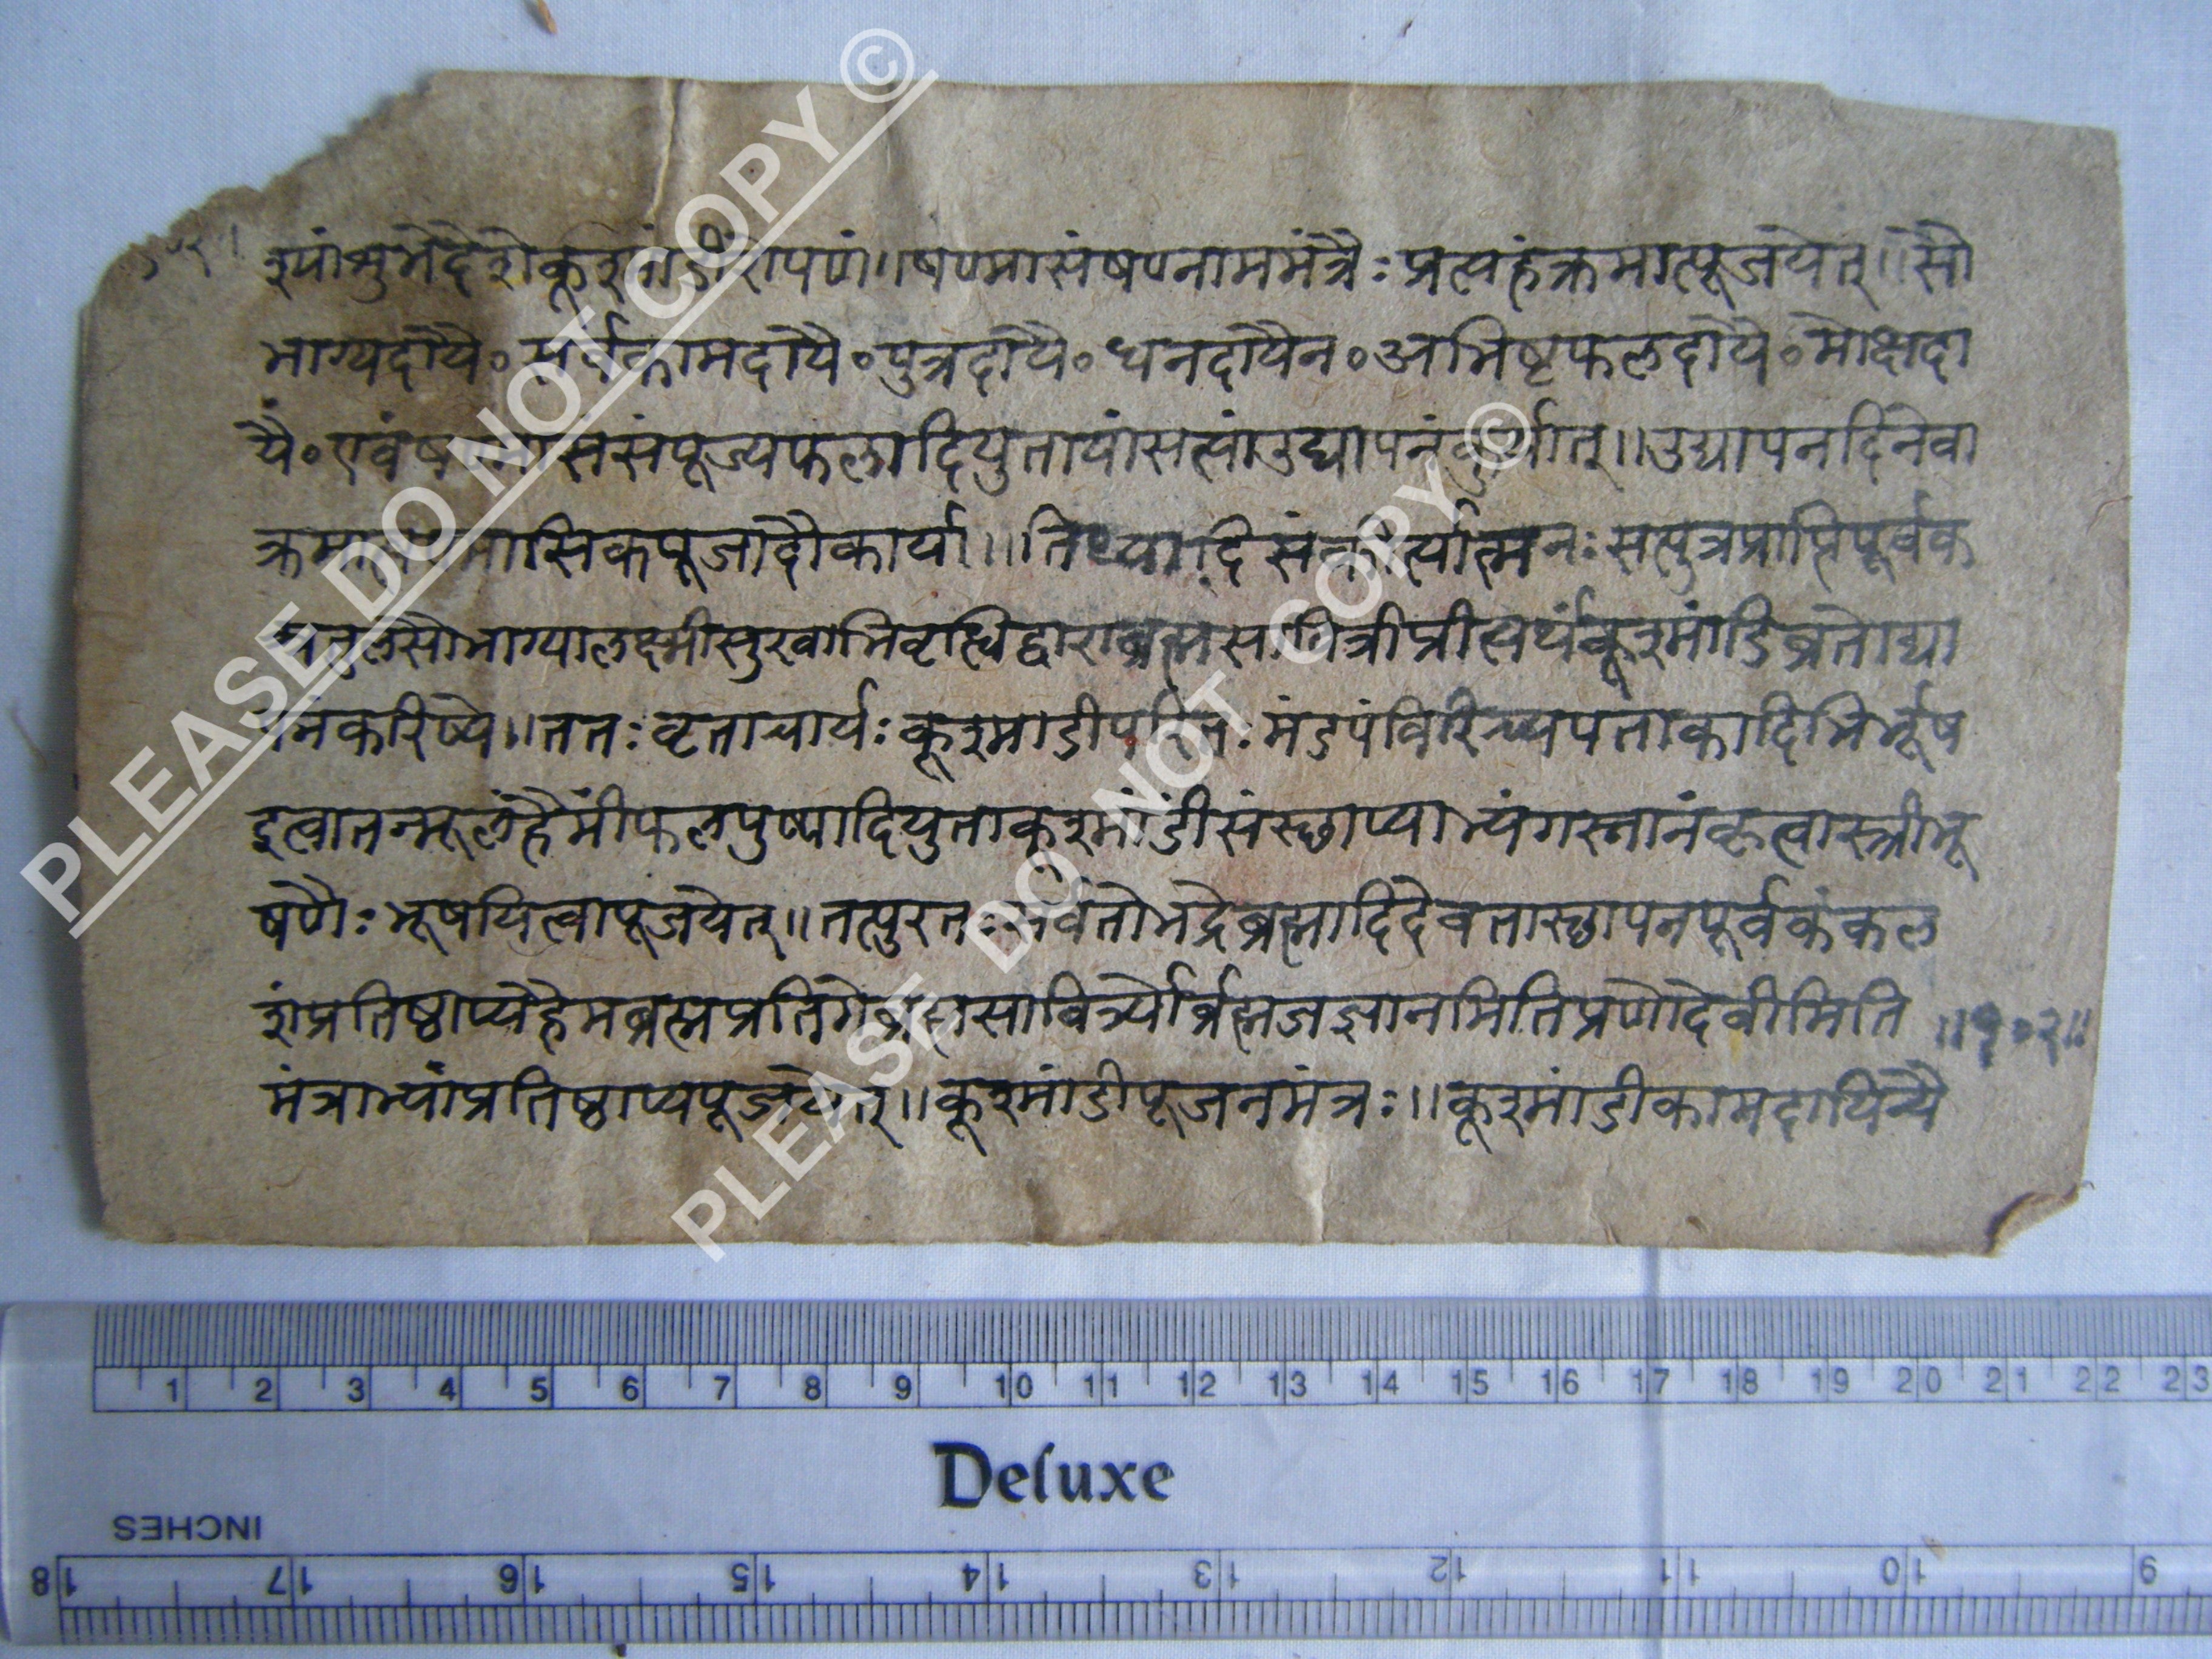 श्यांशुभेदेशेकूश्मांडीरोपणं॥षण्मासंषण्नाममंत्रैःप्रत्यहंक्रमात्पूजयेत्॥सौ
भाग्यदायै॰सर्वकामदायै॰पुत्रदायै॰धनदायैन॰अभिष्टफलदायै॰मोक्षदा
यै॰एवंषण्मासंसंपूज्यफलादियुतायांसत्यांउद्यापनंकुर्यात्॥उद्यापनदिनेवा
क्रमात्षण्मासिकपूजादौकार्या॥तिथ्यादिसंकीर्त्यात्मनःसत्पुत्रप्राप्तिपूर्वक
तुलसौभाग्यालक्ष्मीसुखाभिवृत्धिद्वाराब्रह्मसावित्रीप्रीत्यर्थंकूश्मांडिव्रतोद्या
पनंकरिष्ये॥ततःवृताचार्यःकूश्माडीपरितःमंडपंविरिच्यपताकादिभिर्भूष
इत्वातन्मूलेहैमींफलपुष्पादियुताकूश्मांडींसंस्छाप्याभ्यंगस्नानंकृत्वास्त्रीभू
षणैःभूषयित्वापूजयेत्॥तत्पुरतःसर्वतोभद्रेब्रह्मादिदेवतास्छापनपूर्वकंकल
शंप्रतिष्ठाप्यहैमब्रह्मप्रतिमेब्रह्मसावित्र्योर्ब्रह्मजज्ञानमितिप्रणोदेवीमिति
॥१०२॥
मंत्राभ्यांप्रतिष्ठाप्यपूजयेत्॥कूश्मांडीपूजनमंत्रः॥कूश्मांडीकामदायिन्यै
1 2 3 4 5 6 7 8 9 10 11 12 13 14 15 16 17 18 19 20 21 22 23
Deluxe
INCHES
18 17 16 15 14 13 12 11 10 9
PLEASE DO NOT COPY ©
PLEASE DO NOT COPY ©